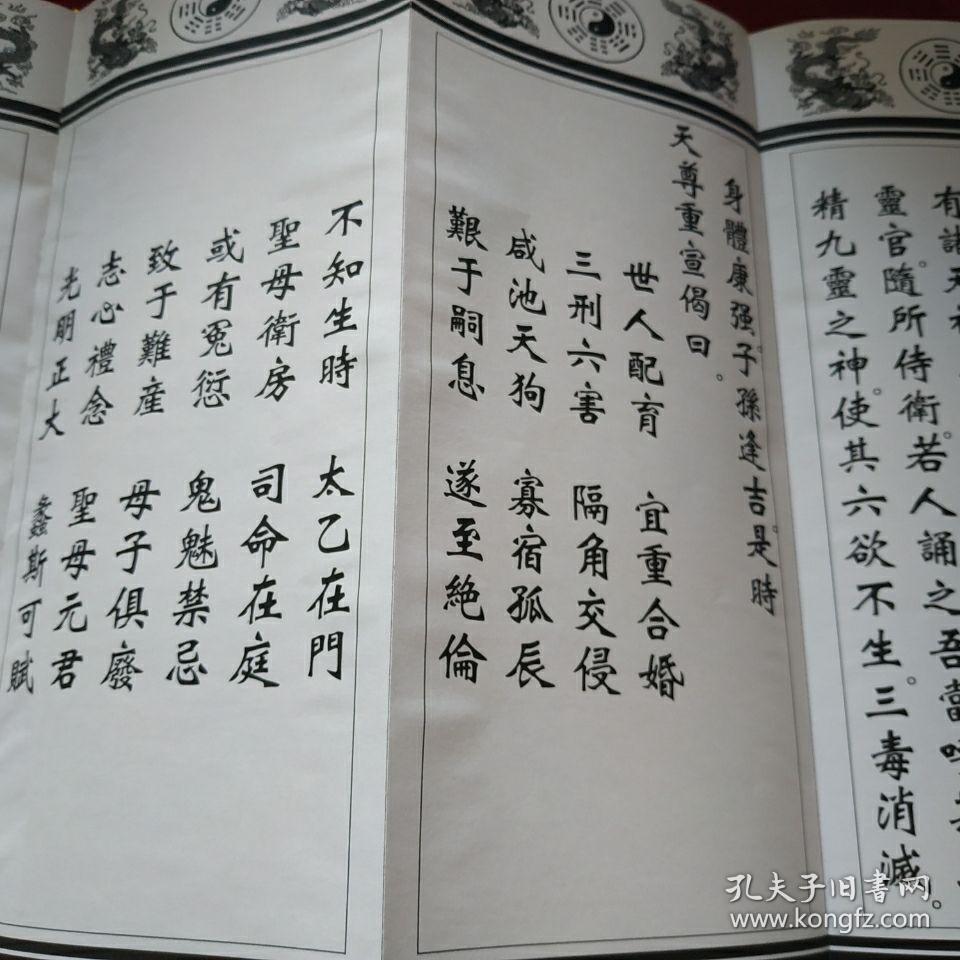 有諸天神
靈官。隨所侍衛。若人誦之。吾當
精九靈之神。使其六欲不生。三毒消滅。
身體康强。子孫逢吉。是時
天尊重宣偈曰。
世人配育 宜重合婚
三刑六害 隔角交侵
咸池天狗 寡宿孤辰
艱于嗣息 遂至絶倫
不知生時 太乙在門
聖母衛房 司命在庭
或有冤愆 鬼魅禁忌
致于難産 母子俱廢
志心禮念 聖母元君
光明正大 螽斯可賦
孔夫子旧書网
www.kongfz.com